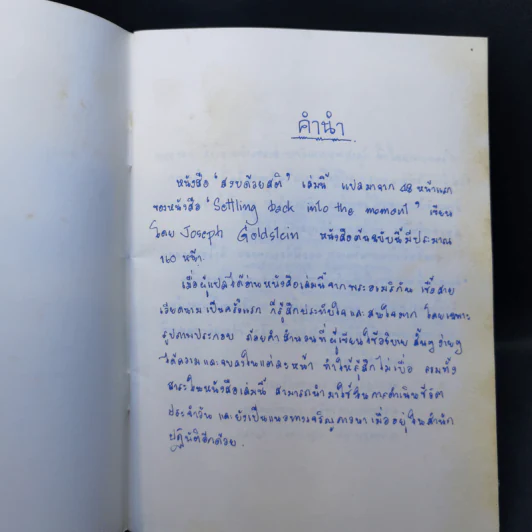 คำนำ
หนังสือ "สงบด้วยสติ" เล่มนี้ แปลมาจาก 48 หน้าแรก
ของหนังสือ "Settling back into the moment" เขียน
โดย Joseph Goldstein หนังสือต้นฉบับนี้มีประมาณ
160 หน้า.
เมื่อผู้แปลได้อ่านหนังสือเล่มนี้จากพระอเมริกัน เชื้อสาย
เวียดนามเป็นครั้งแรก ก็รู้สึกประทับใจและสนใจมาก โดยเฉพาะ
รูปภาพประกอบ ถ้อยคำสำนวนที่ผู้เขียนใช้อธิบาย สั้นๆ ง่ายๆ
ได้ความและจบลงในแต่ละหน้า ทำให้รู้สึกไม่เบื่อ รวมทั้ง
สาระในหนังสือเล่มนี้ สามารถนำมาใช้ในการดำเนินชีวิต
ประจำวัน และยังเป็นแนวทางเจริญภาวนาเมื่ออยู่ในสำนัก
ปฏิบัติอีกด้วย.